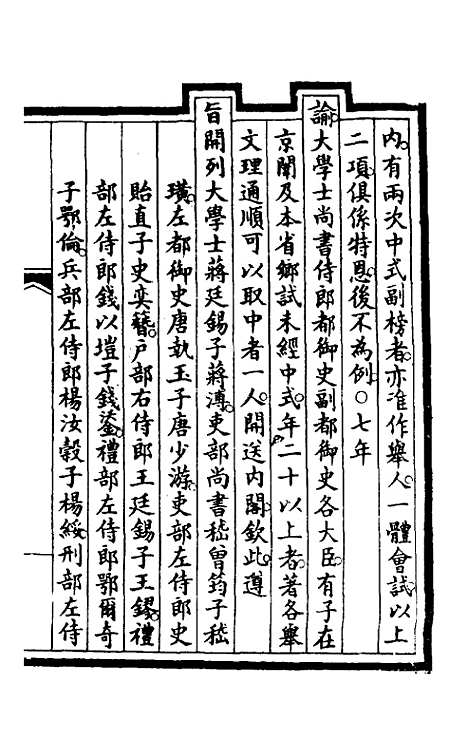 内有兩次中式副榜者亦准作舉人一體會試以上
二項俱係特恩後不為例〇七年
諭大學士尚書侍郎都御史副都御史各大臣有子在
京闈及本省鄉試未經中式年二十以上者著各舉
文理通順可以取中者一人開送内閣欽此遵
旨開列大學士蔣廷錫子蔣溥吏部尚書嵇曾筠子嵇
璜左都御史唐執玉子唐少游吏部左侍郎史
貽直子史奕簪戶部右侍郎王廷錫子王鏐禮
部左侍郎錢以塏子錢鋈禮部左侍郎鄂爾奇
子鄂倫兵部左侍郎楊汝糓子楊綏刑部左侍